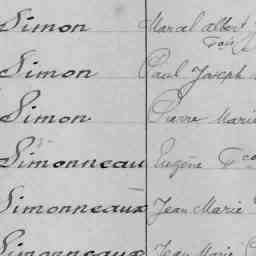 Simon Marcel Albert
Simon Paul Joseph
Simon Pierre Marie
Simonneau Eugène
Simonneaux Jean Marie
Simonneaux Jean Marie